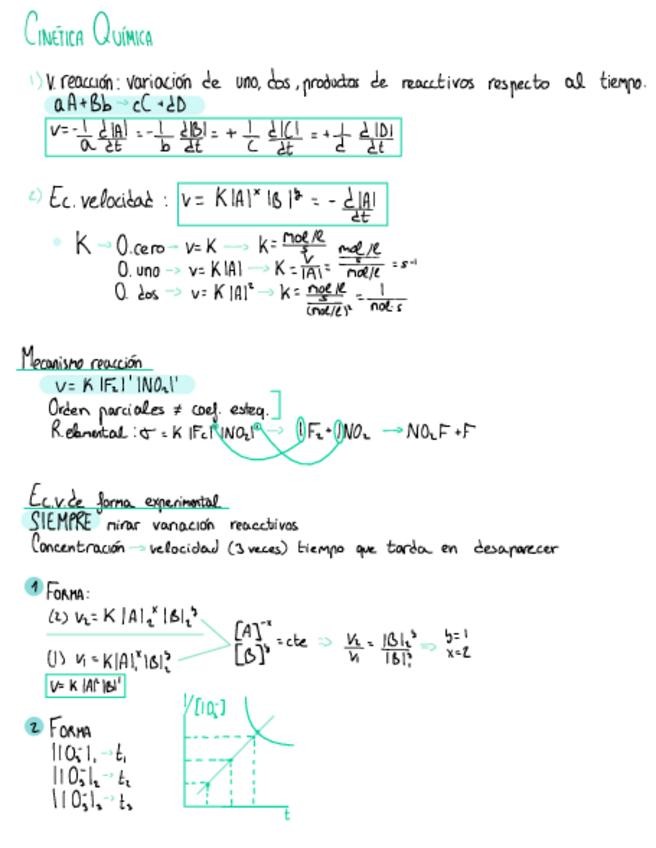 CINÉTICA QUÍMICA
1) V. reacción: variación de uno, dos, productos de reacctivos respecto al tiempo.
aA+Bb → cC + dD
v = - 1/a d|A|/dt = - 1/b d|B|/dt = + 1/c d|C|/dt = + 1/d d|D|/dt
2) Ec. velocidad : v = K |A|ˣ |B|ʸ = - d|A|/dt
K → O. cero → v= K → k= mol/l/s
O. uno → v= K|A| → K = v/|A| = mol/l/s / mol/l = s⁻¹
O. dos → v= K |A|² → k= mol/l/s / (mol/l)² = 1/mol·s
Mecanismo reacción
v= K |F₂|¹ |NO₂|¹
Orden parciales ≠ coef. esteq.
R. elemental : σ = K |F₂| |NO₂| → 1F₂ + 1NO₂ → NO₂F + F
Ec. v. de forma experimental
SIEMPRE mirar variación reacctivos
Concentración → velocidad (3 veces) tiempo que tarda en desaparecer
1 FORMA:
(2) v₂ = K |A|₂ˣ |B|₂ʸ
[A]⁻ˣ
[B]ʸ = cte ⇒ v₂/v₁ = |B|₂ʸ/|B|₁ʸ ⇒ y=1 x=2
(1) v₁ = K|A|₁ˣ |B|₁ʸ
v= K |A|² |B|¹
2 FORMA
|IO₃⁻|₁ → t₁
|IO₃⁻|₂ → t₂
|IO₃⁻|₃ → t₃
1/[IO₃⁻]
t